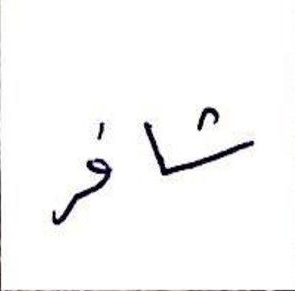 شافر